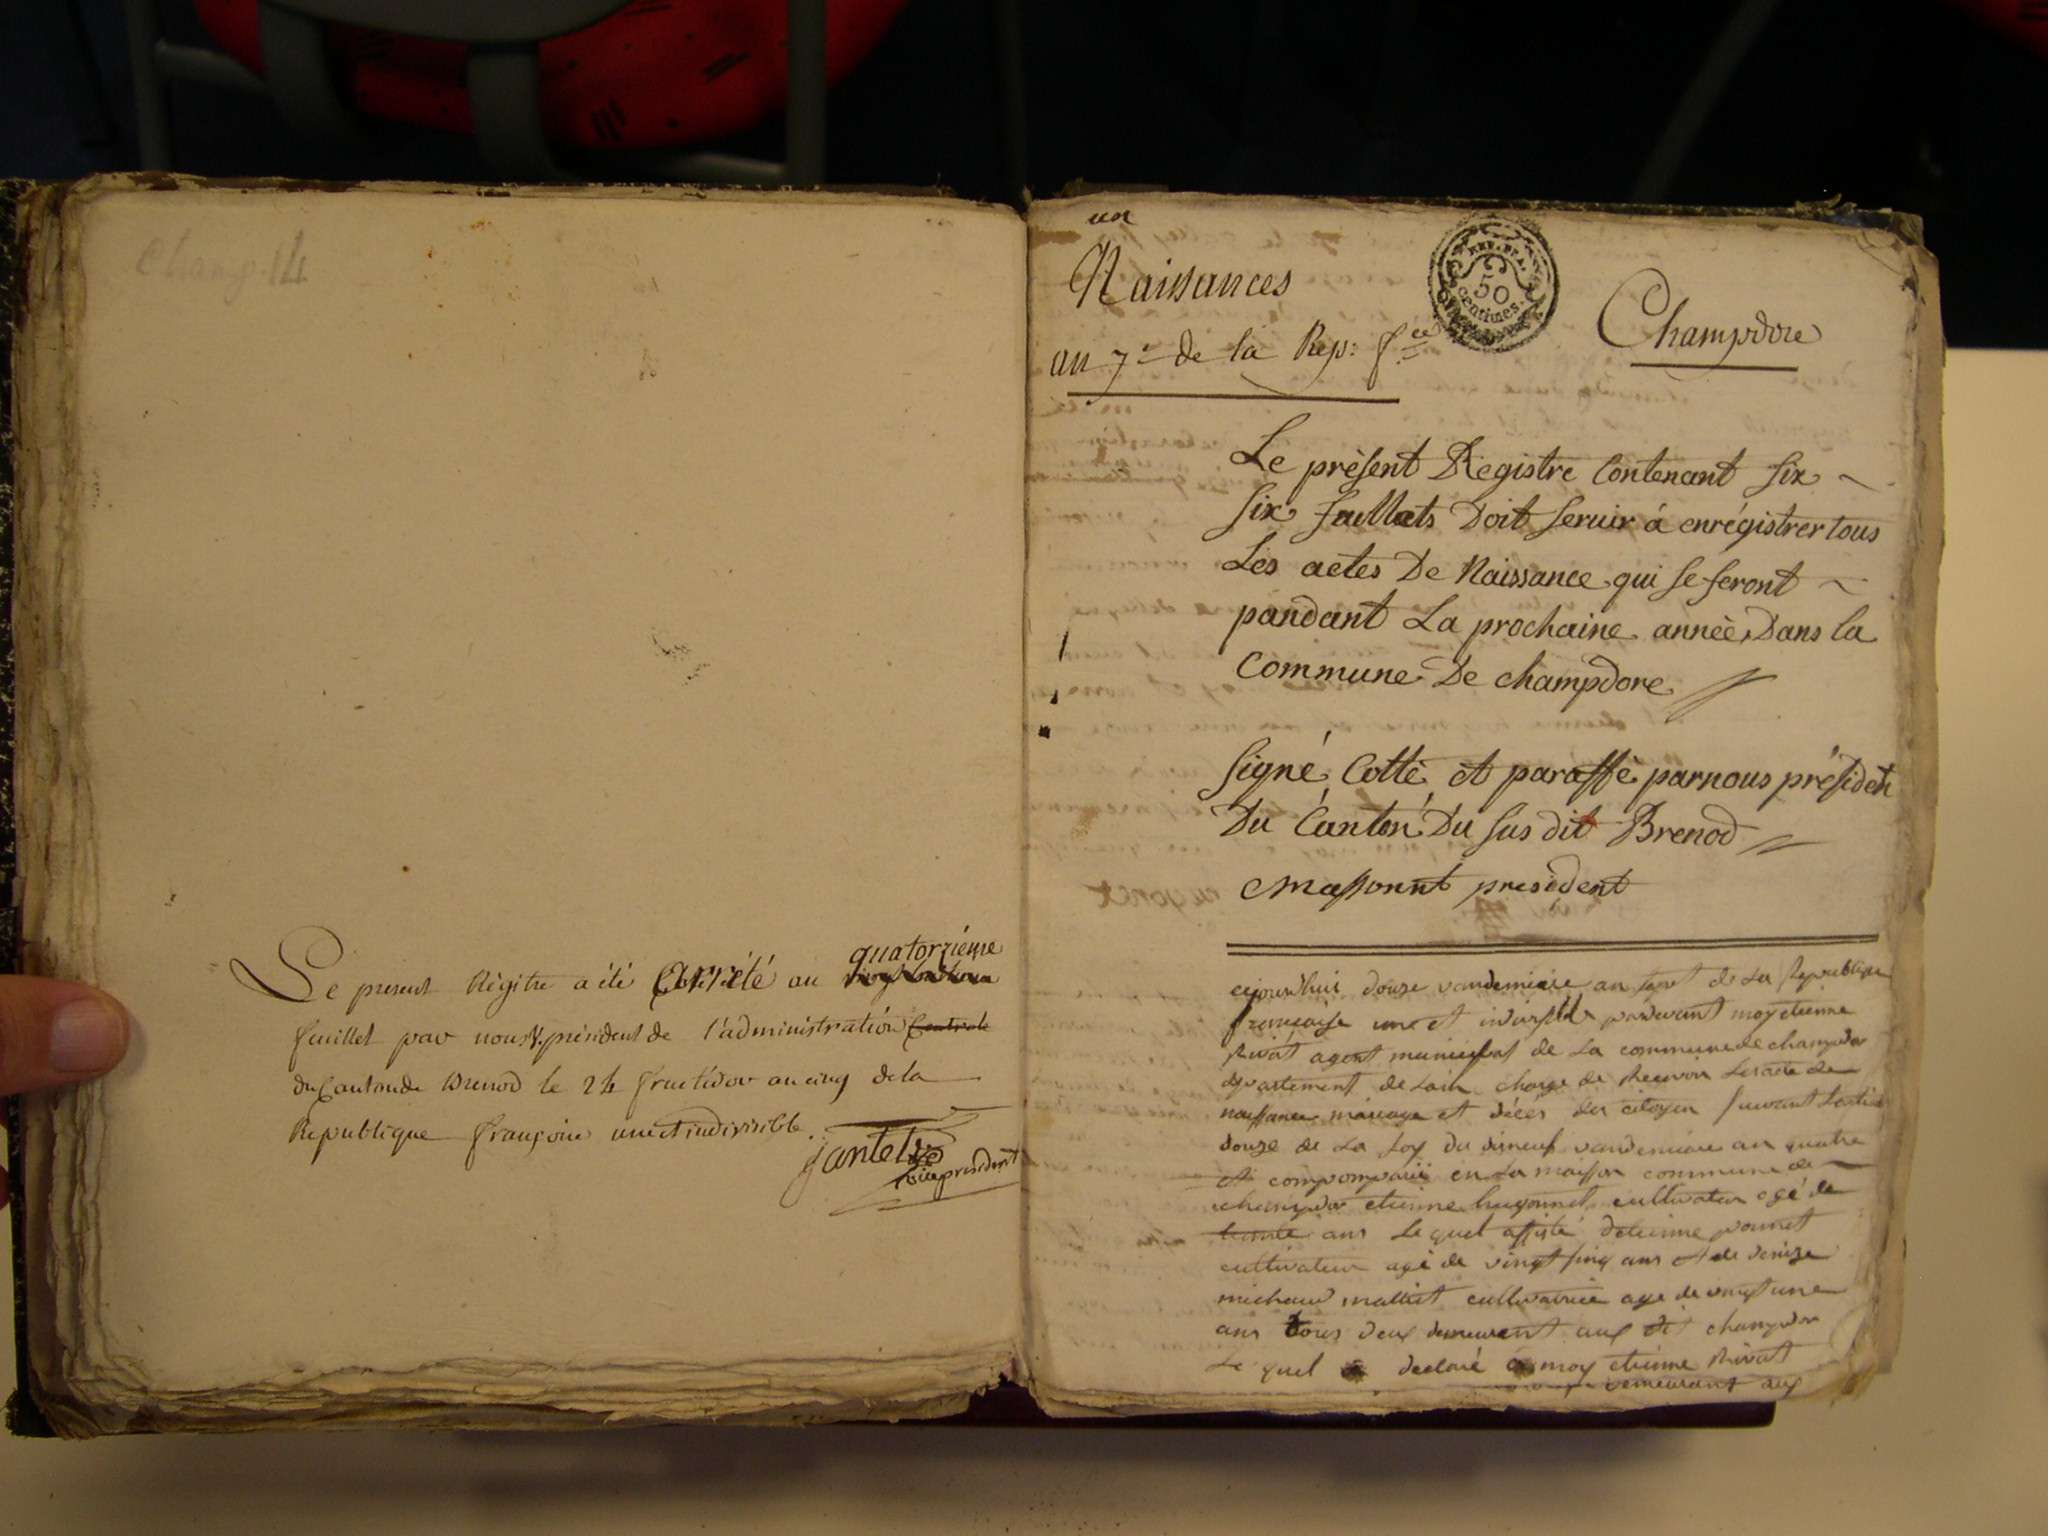 Champ. 14
Le present Régitre a été Carrété au quatorziéme
feuillet par nous V. président de l'administration Centrale
du Canton de Brenod le 24 fructidor an cinq de la
Republique françoise une et indivisible.
Vice president
un
Naissances
REP. FRA.
50
centimes.
Champdore
an 7.e de la Rep: f.ce
Le présent Registre Contenant six
six fuillets Doit servir á enrégistrer tous
Les actes De Naissance qui se feront
pandant La prochaine annèe, Dans la
Commune De champdore
signé, Cotté, et paraffé par nous présiden
Du Canton Du sus dit Brenod
Massonnt president
aujourdhui douze vandemiaire an sept de La Republique
francaise une et indivisible pardevant moy etienne
Rivat agent municipal de La commune de champdor
departement de Lain charge de Recevoir Les acte de
naissance mariage et décés des citoyen suivant Larticl
douze de La Loy du dineuf vandemiaire an quatre
et comparu en La maison commune de
champdor etienne hugonnet cultivateur agé de
trente ans Lequel assisté detienne
cultivateur agé de vingt sinq ans et de denize
michaud cultivatrice age de vingt une
ans tous deux demeurant aux dit champdor
Le quel a declaré a moy etienne Rivat
demeurant aux